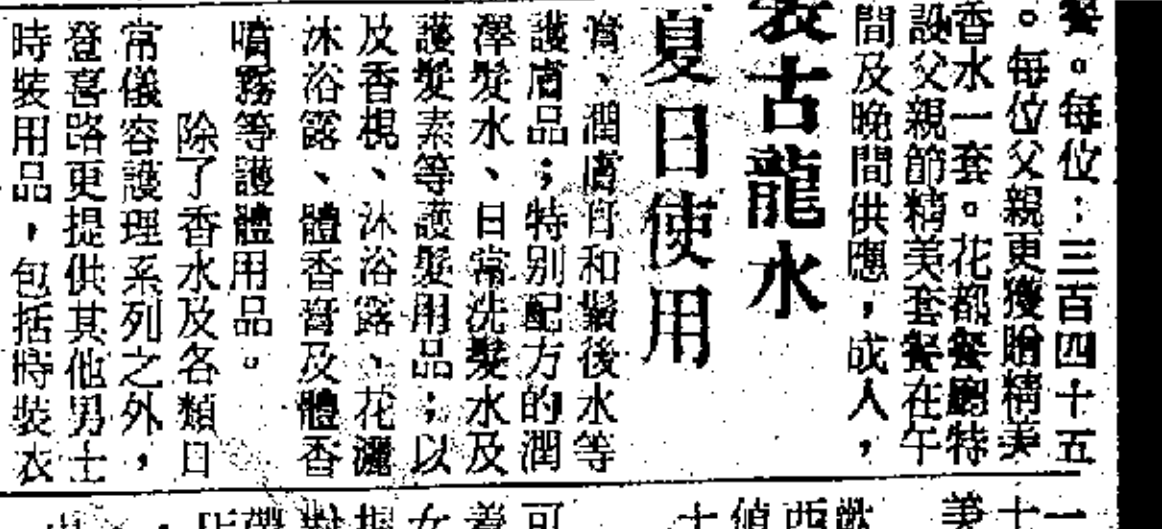 餐。每位：三百四十五
。每位父親更獲贈精美
香水一套。花都餐廳特
設父親節精美套餐在午
間及晚間供應，成人，
裝古龍水
夏日使用
膏、潤膚膏和鬚後水等
護膚品；特别配方的潤
澤髮水、日常洗髮水及
護髮素等護髮用品；以
及香梘、沐浴露、花灑
沐浴露、體香膏及體香
噴霧等護體用品。
除了香水及各類日
常儀容護理系列之外，
登喜路更提供其他男士
時裝用品，包括時裝衣